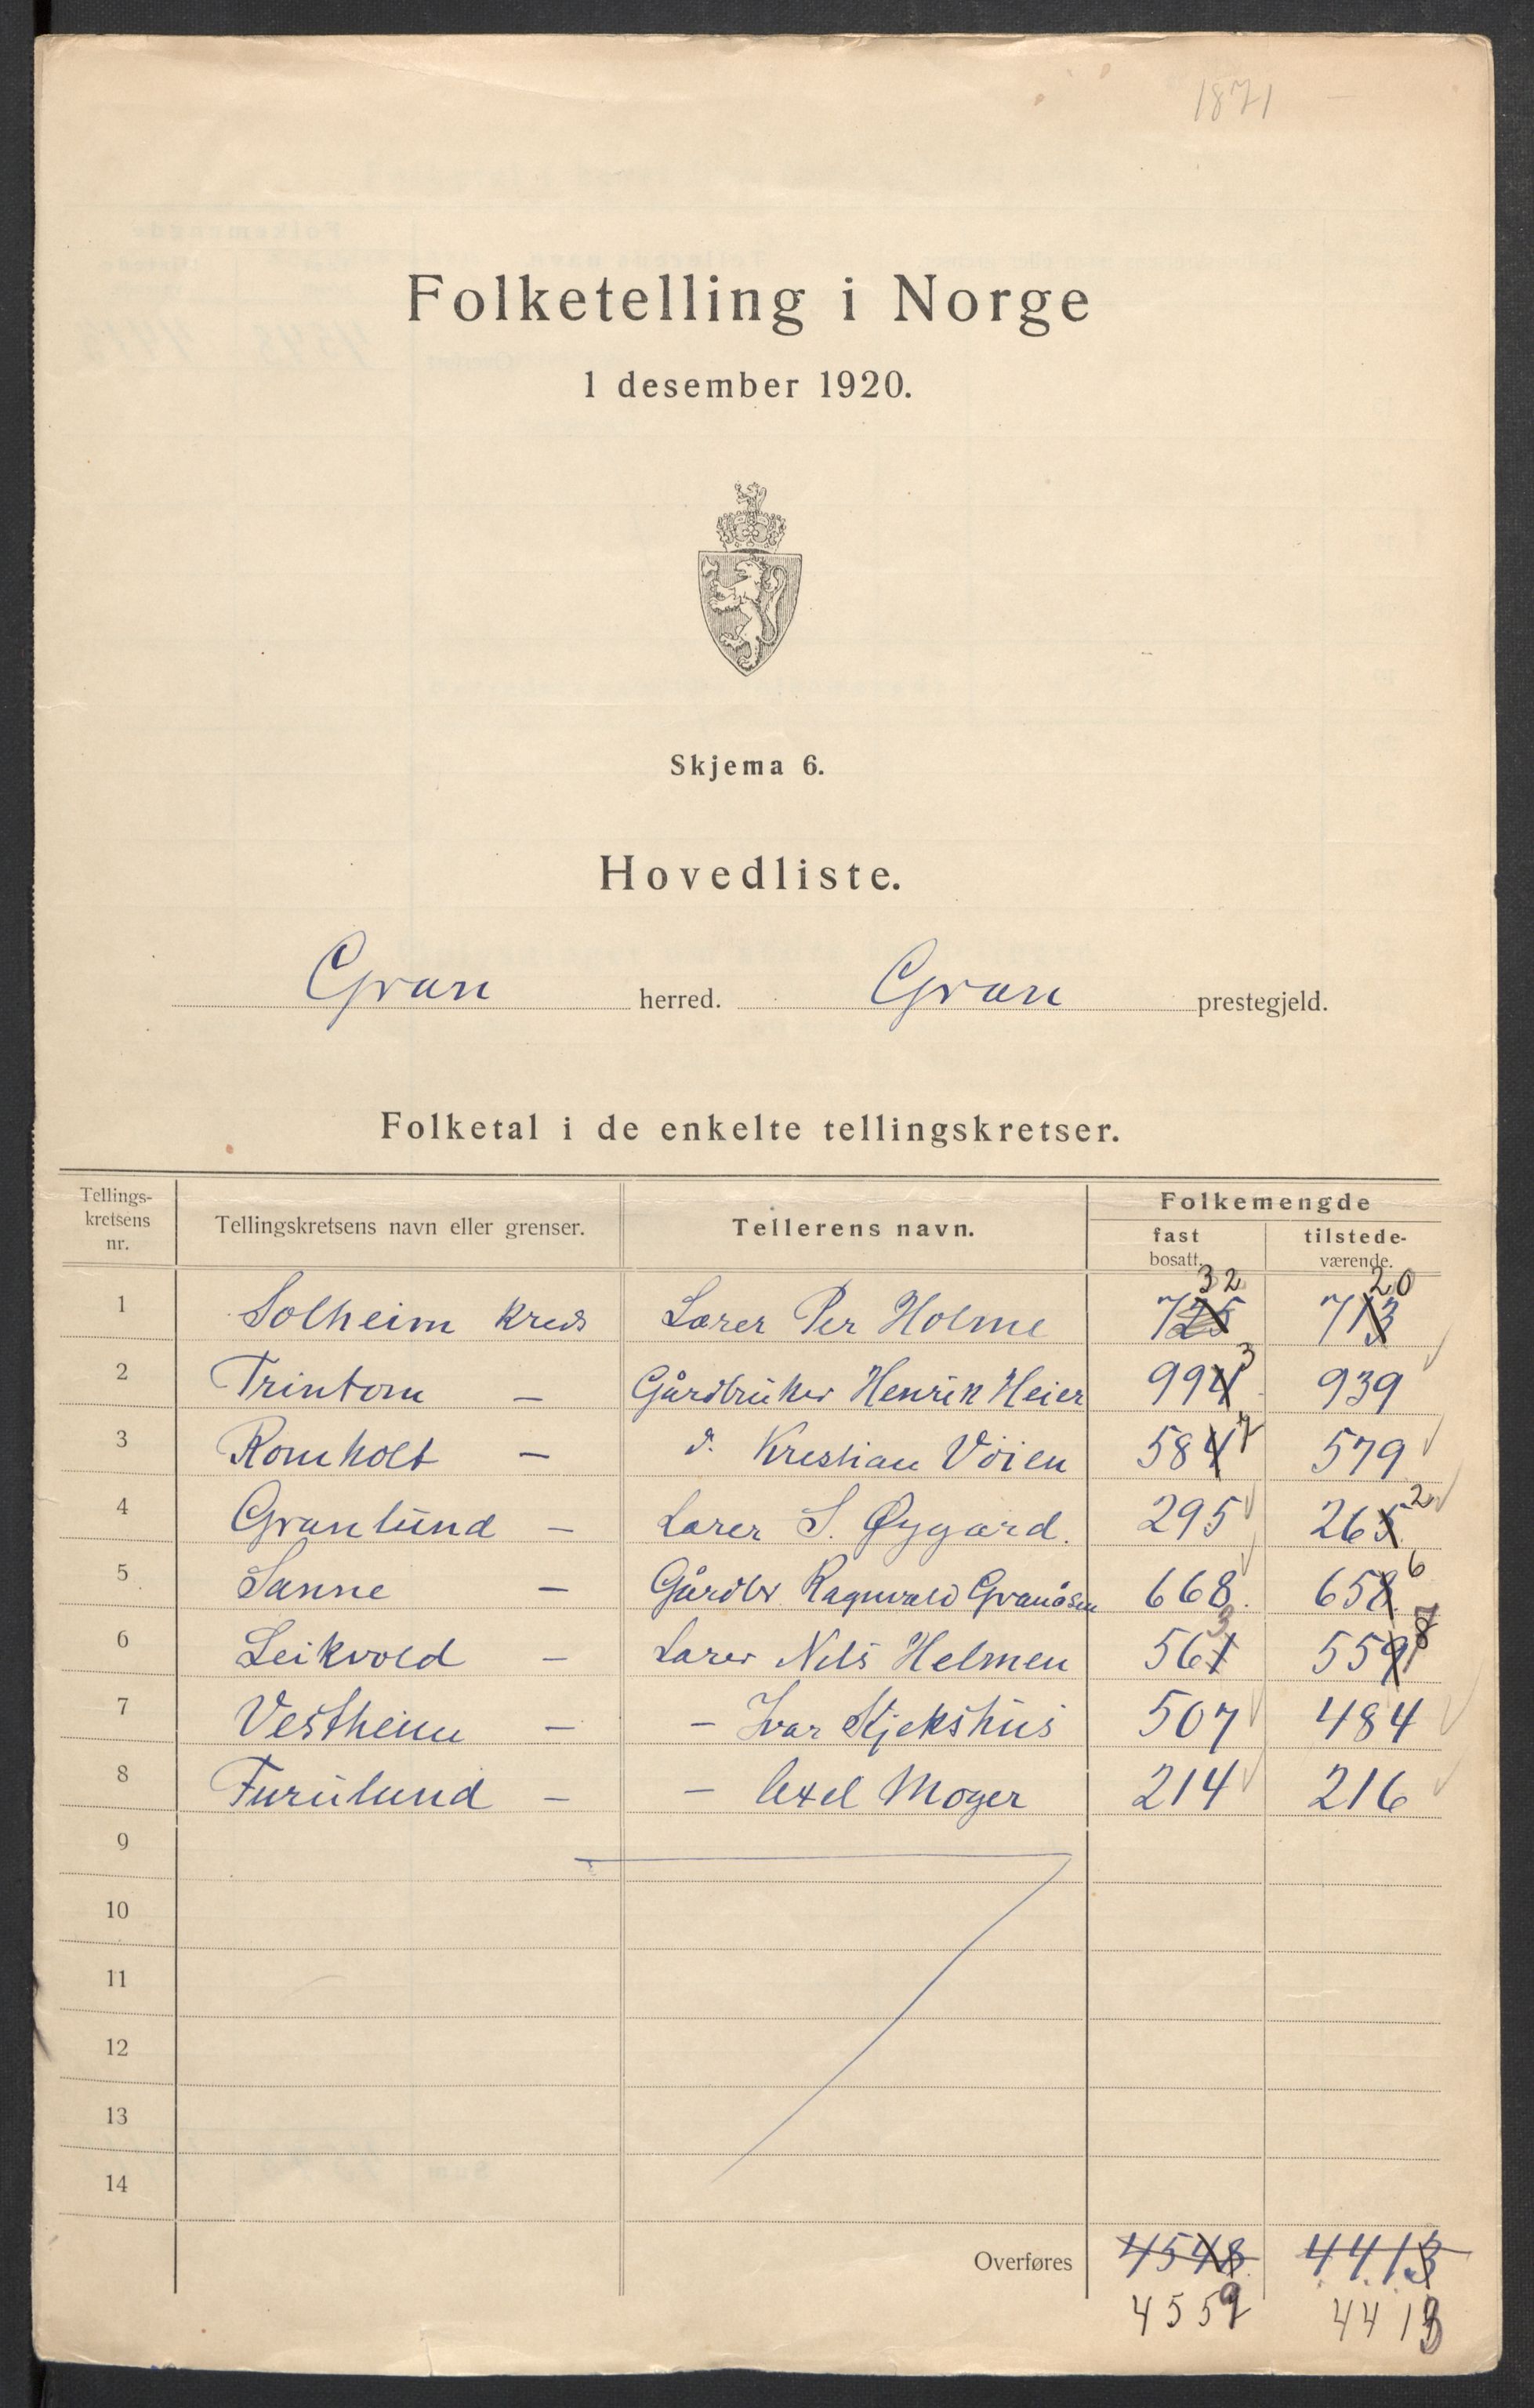 1871
Folketelling i Norge
1 desember 1920.
Skjema 6.
Hovedliste.
Gran herred. Gran prestegjeld.
Folketal i de enkelte tellingskretser.
Tellings-kretsens nr. Tellingskretsens navn eller grenser. Tellerens navn. Folkemengde
fast bosatt. tilstede-værende.
32 20
1 Solheim kreds Lærer Per Holme 725 713
2 Trintom — Gårdbruker Henrik Heier 994 3 939
3 Romholt — d. Kristian Vöien 584 7 579
4 Granlund — Lærer S. Øygard. 295 265 2
5 Sanne — Gårdbr Ragnvald Granåsen 668. 658 6
6 Leikvold — Lærer Nils Helmen 561 3 559 8
7 Vestheim — — Ivar Kjekshus 507 484
8 Furulund — — Axel Moger 214 216
9
10
11
12
13
14
Overføres 4548. 4413
4559 4413